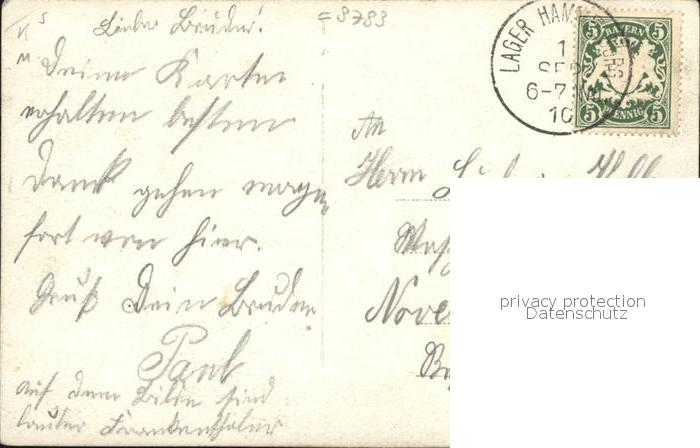 K S
M
= 9783
Lieber Bruder!
Deine Karte
erhalten besten
Dank gehen morgen
fort von hier.
Gruß Dein Bruder
Paul
auf dem Bilde sind
lauter Frankenthaler
LAGER HAM
1
SEP
6-7
10
5 BAYERN 5
5 PFENNIG 5
An
Herrn
Nove
privacy protection
Datenschutz